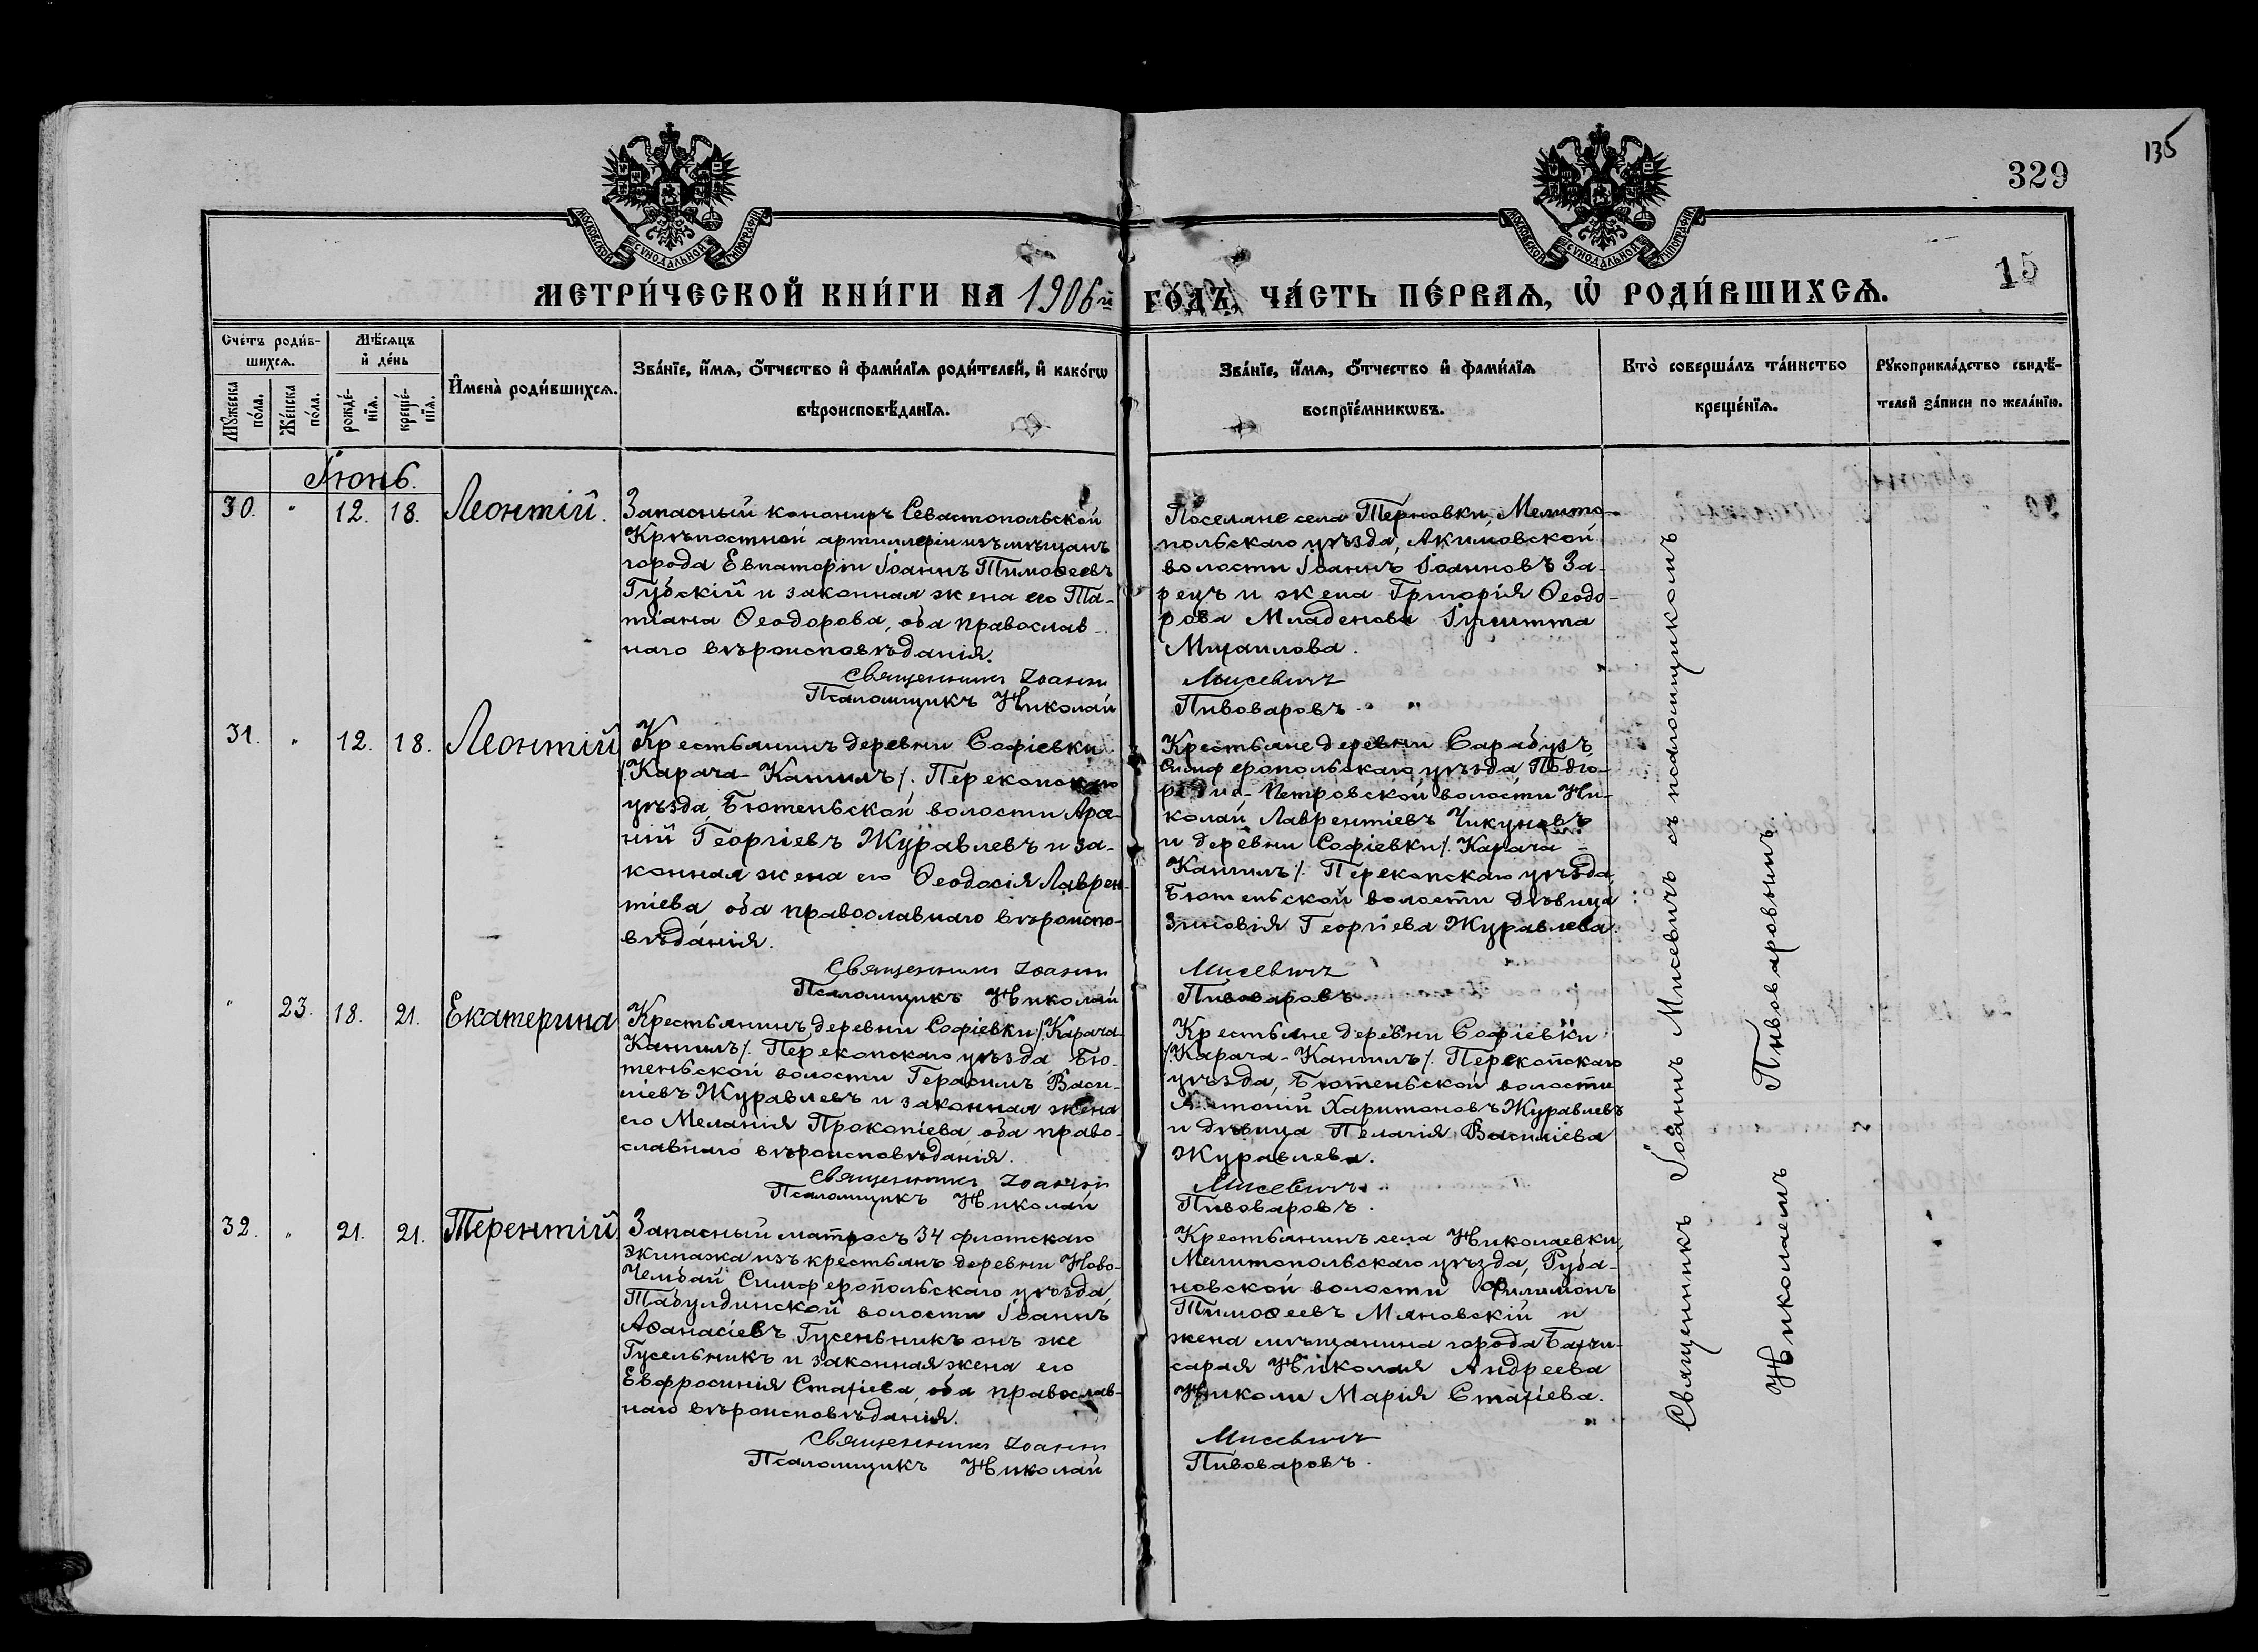 135
329
15
МОСКОВСКОЙ СѴНОДАЛЬНОЙ ТИПОГРАФІИ
МОСКОВСКОЙ СѴНОДАЛЬНОЙ ТИПОГРАФІИ
МЕТРИ́ЧЕСКОЙ КНИ́ГИ НА 1906й ГО́ДЪ, ЧА́СТЬ ПЕ́РВАѦ, Ѡ҆ РОДИ́ВШИХСѦ.
Сче́тъ роди́в-
шихсѧ.
Мꙋ́жеска
по́ла.
Же́нска
по́ла.
Мѣ́сѧцъ
и҆ де́нь
рожде́-
нїѧ.
креще́-
нїѧ.
И҆мена̀ роди́вшихсѧ.
Зва́нїе, и҆́мѧ, ѻ҆́тчество и҆ фамѝлїѧ роди́телей, и҆ како́гѡ
вѣроисповѣ́данїѧ.
Зва́нїе, и҆́мѧ, ѻ҆́тчество и҆ фами́лїѧ
воспрїе́мникѡвъ.
Кто̀ соверша́лъ та́инство
креще́нїѧ.
Рꙋкоприкла́дство свидѣ́-
телей за́писи по жела́нїю.
Іюнь.
30. " 12. 18. Леонтій.
Запасный канониръ Севастопольской
Крѣпостной артиллеріи изъ мѣщанъ
города Евпаторіи Іоаннъ Тимоѳеевъ
Губскій и законная жена его Та-
тіана Ѳеодорова, оба православ-
наго вѣроисповѣданія.
Священникъ Іоаннъ
Псаломщикъ Николай
Поселяне села Терновки, Мелито-
польскаго уѣзда, Акимовской
волости Іоаннъ Іоанновъ За-
рецъ и жена Григорія Ѳеодо-
рова Младенова Іулитта
Михаилова.
Мисевичъ
Пивоваровъ.
31. " 12. 18. Леонтій
Крестьянинъ деревни Софіевки
/Карача-Кангилъ/. Перекопскаго
уѣзда, Бютеньской волости
Георгіевъ Журавлевъ и за-
конная жена его Ѳеодосія Лаврен-
тіева, оба православнаго вѣроиспо-
вѣданія.
Священникъ Іоаннъ
Псаломщикъ Николай
Крестьяне деревни Сарабузъ,
Симферопольскаго уѣзда, Подго-
родне-Петровской волости Ни-
колай Лаврентіевъ Чикуновъ
и деревни Софіевки /. Карача-
Кангилъ/. Перекопскаго уѣзда,
Бютеньской волости дѣвица
Зиновія Георгіева Журавлева.
Мисевичъ
Пивоваровъ
" 23. 18. 21. Екатерина
Крестьянинъ деревни Софіевки /.Карача-
Кангилъ/. Перекопскаго уѣзда, Бю-
теньской волости Герасимъ Васи-
ліевъ Журавлевъ и законная жена
его Меланія Прокопіева, оба право-
славнаго вѣроисповѣданія.
Священникъ Іоаннъ
Псаломщикъ Николай
Крестьяне деревни Софіевки
/.Карача-Кангилъ/. Перекопскаго
уѣзда, Бютеньской волости
Антоній Харитоновъ Журавлевъ
и дѣвица Пелагія Василіева
Журавлева.
Мисевичъ
Пивоваровъ.
32. " 21. 21. Терентій.
Запасный матросъ 34 флотскаго
экипажа изъ крестьянъ деревни Ново-
Чембай Симферопольскаго уѣзда,
Табулдинской волости Іоаннъ
Аѳанасіевъ Гусеньникъ онъ же
Гусельникъ и законная жена его
Евфросинія Стахіева, оба православ-
наго вѣроисповѣданія.
Священникъ Іоаннъ
Псаломщикъ Николай
Крестьянинъ села Николаевки,
Мелитопольскаго уѣзда, Руба-
новской волости Филимонъ
Тимоѳеевъ Мяновскій и
жена мѣщанина города Бахчи-
сарая Николая Андреева
Николи Марія Стахіева.
Мисевичъ
Пивоваровъ.
Священникъ Іоаннъ Мисевичъ съ псаломщикомъ
Николаемъ Пивоваровымъ